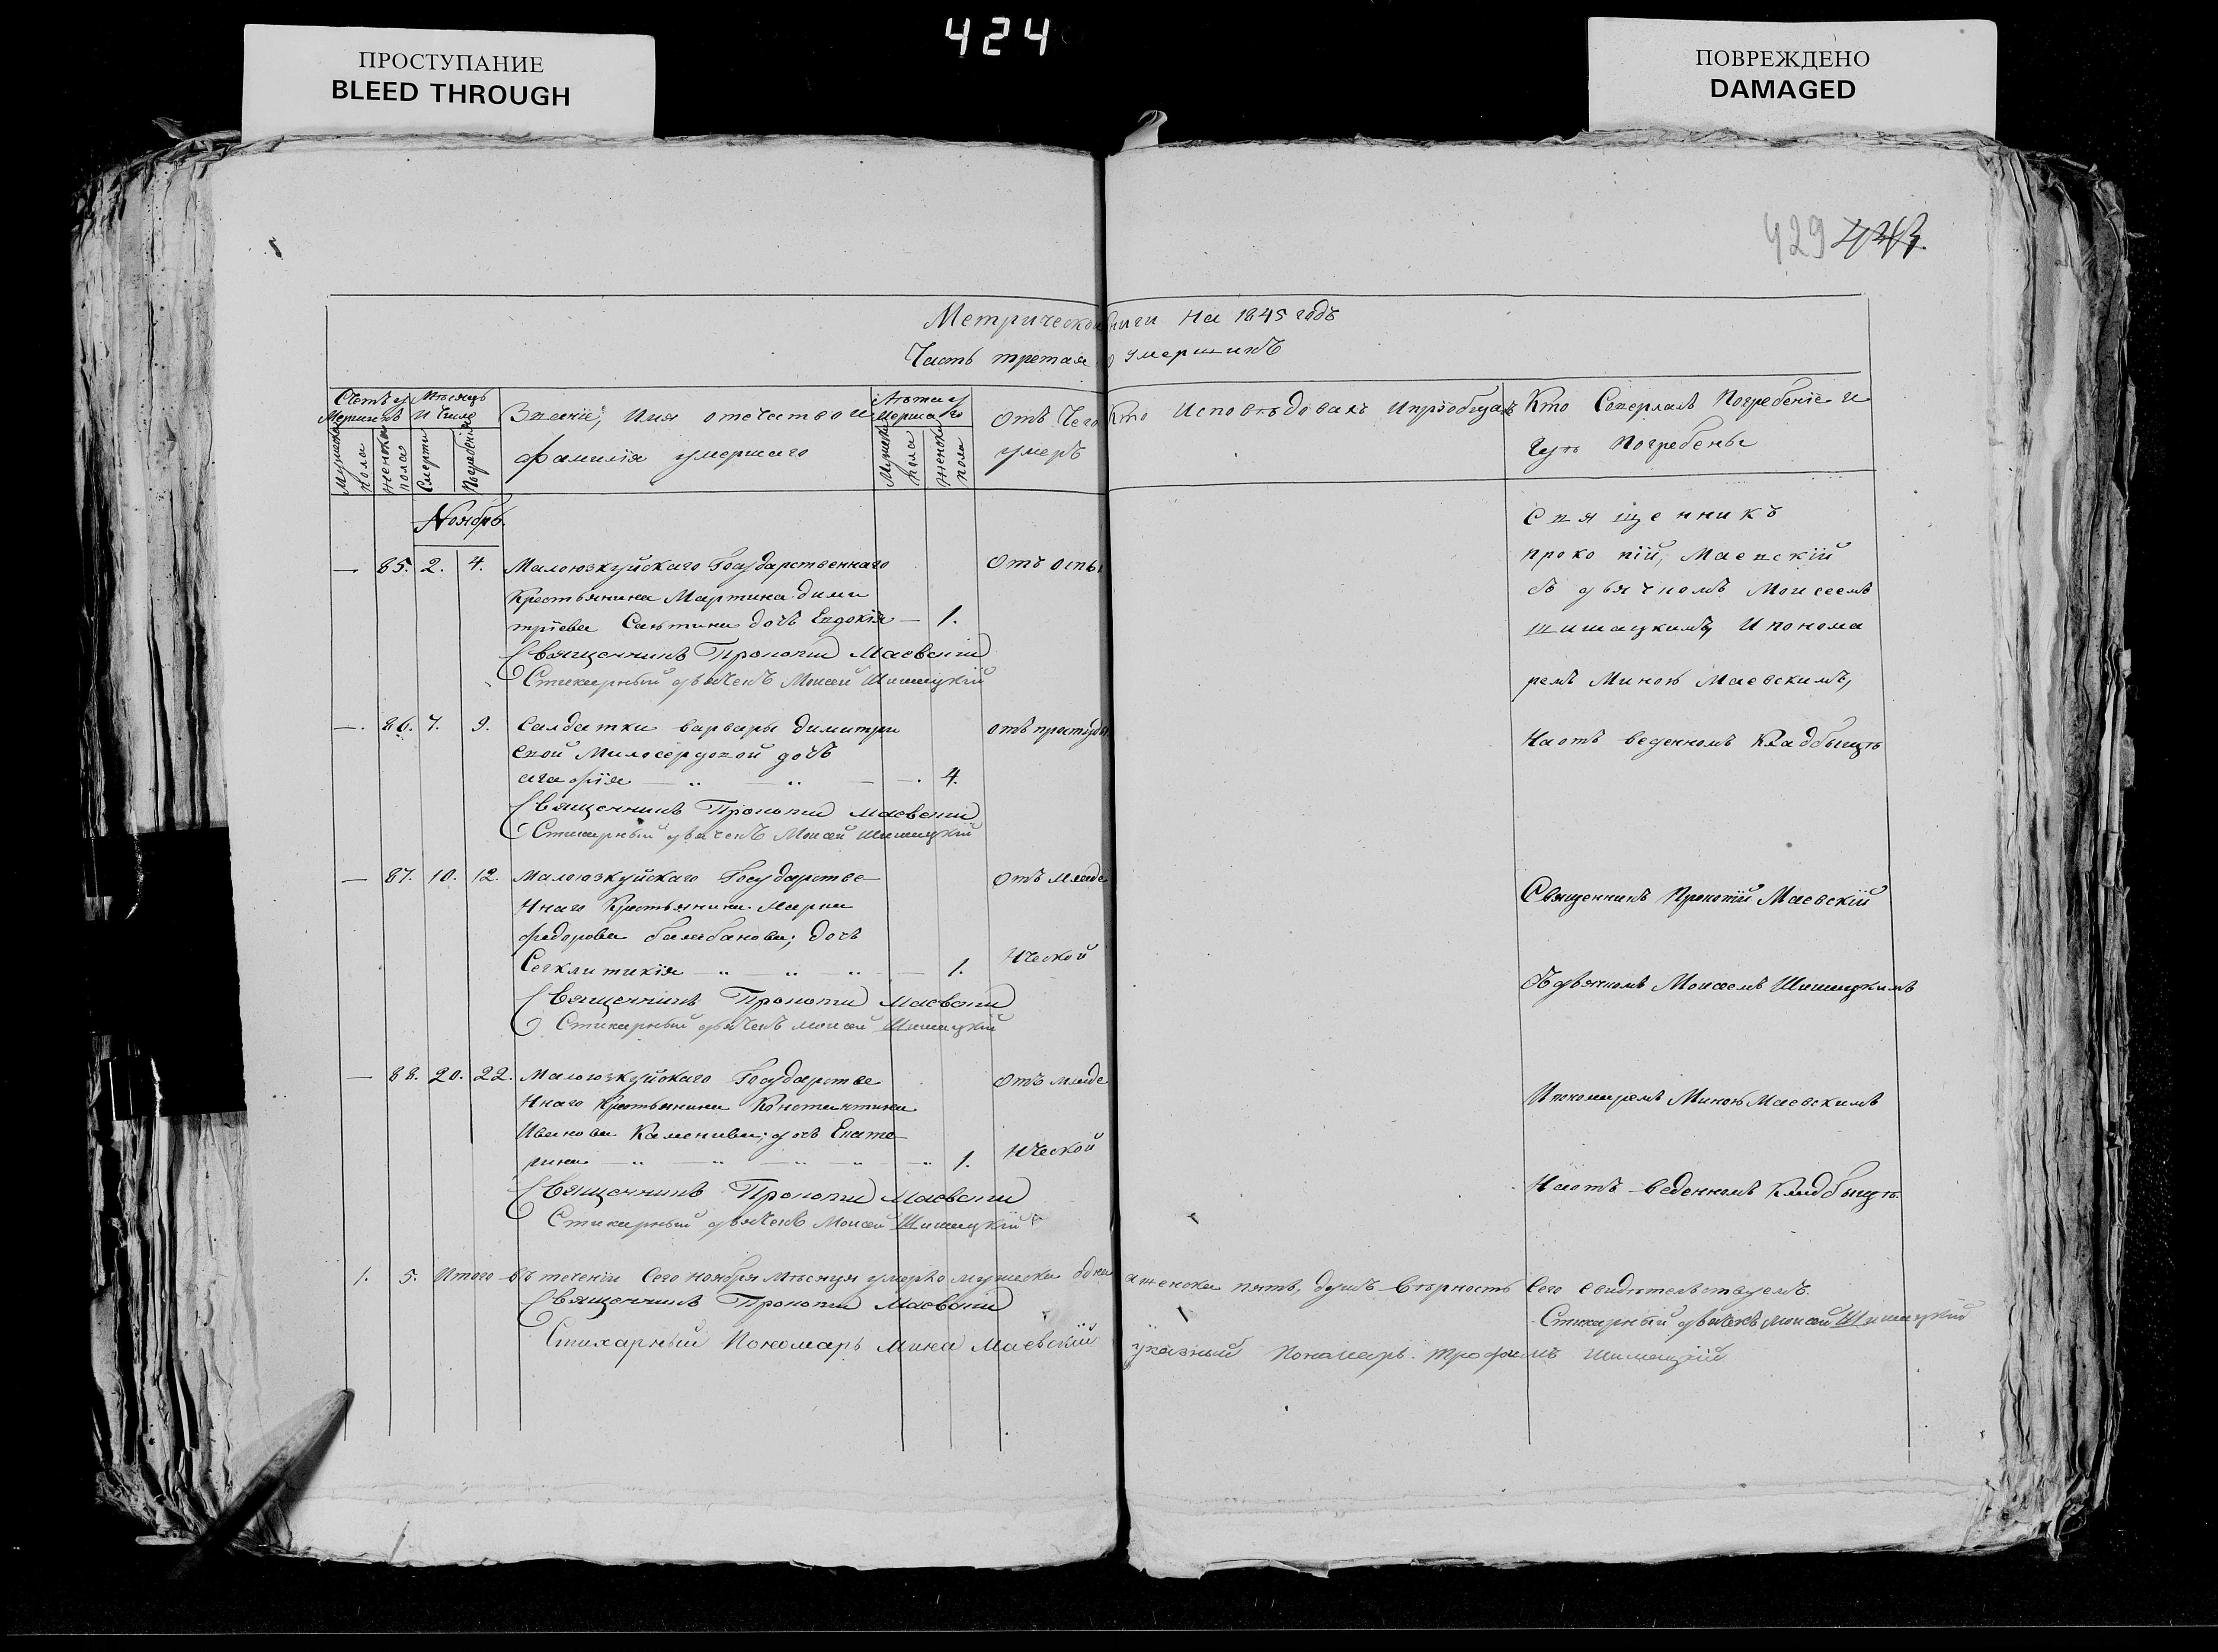 424
ПРОСТУПАНИЕ
BLEED THROUGH
ПОВРЕЖДЕНО
DAMAGED
429
Метрической книги на 1845 годъ
Часть третая о умершихъ
Счетъ у Мѣсяцъ
Мершихъ и Число
Мужеска пола
Женска пола
Смерти
Погребенія
Званіе, Имя отечество и
фамилія умершаго
Лѣта у
Мершаго
Мужеска пола
Женска пола
Отъ Чего
умеръ
Кто Исповѣдовалъ и пріобщалъ
Кто Соверлалъ Погребеніе и
Гдѣ Погребены
Ноябрь.
— 85. 2. 4. Малоюзкуйскаго Государственнаго
Крестьянина Мартина Дими
тріева дочь Евдокія — 1.
Отъ оспы
Священникъ Прокопий Маевский
Стихарный дьячекъ Моисей Шишацкій
Священникъ
прокопій, Маевскій
съ дьячкомъ Моисеемъ
шишацкимъ, И понома
ремъ Миною Маевскимъ,
На отъ веденномъ Кладбыщѣ
— 86. 7. 9. Салдатки варвары Димитри
евой Милосердовой дочь
агафія — — 4.
отъ простуды
Священникъ Прокопий Маевский
Стихарный дьячекъ Моисей Шишацкій
— 87. 10. 12. Малоюзкуйскаго Государстве
Ннаго Крестьянина
федорова балабанова; дочь
Сегклитикія — — 1.
Отъ Младе
Нческой
Священникъ Прокопий Маевский
Стихарный дьячекъ Моисей Шишацкій
Священникъ Прокопій Маевскій
Съ дьячкомъ Моисеемъ Шишацкимъ
— 88. 20. 22. Малоюзкуйскаго Государстве
Ннаго Крестьянина Константина
Иванова Каменива; дочь Екате
рина — — 1.
Отъ младе
Нческой
Священникъ Прокопий Маевский
Стихарный дьячекъ Моисей Шишацкій
И пономаремъ Миною Маевскимъ
На отъ веденномъ Кладбыщѣ
1. 5. Итого въ теченіи Сего ноября Мѣсяца умерло мужеска одна а женска пять, душъ вѣрность Сего свидѣтельствуемъ.
Священникъ Прокопий Маевский
Стихарный дьячекъ Моисей Шишацкій
Стихарный Пономарь Мина Маевскій указный пономарь Трофимъ Шишацкій